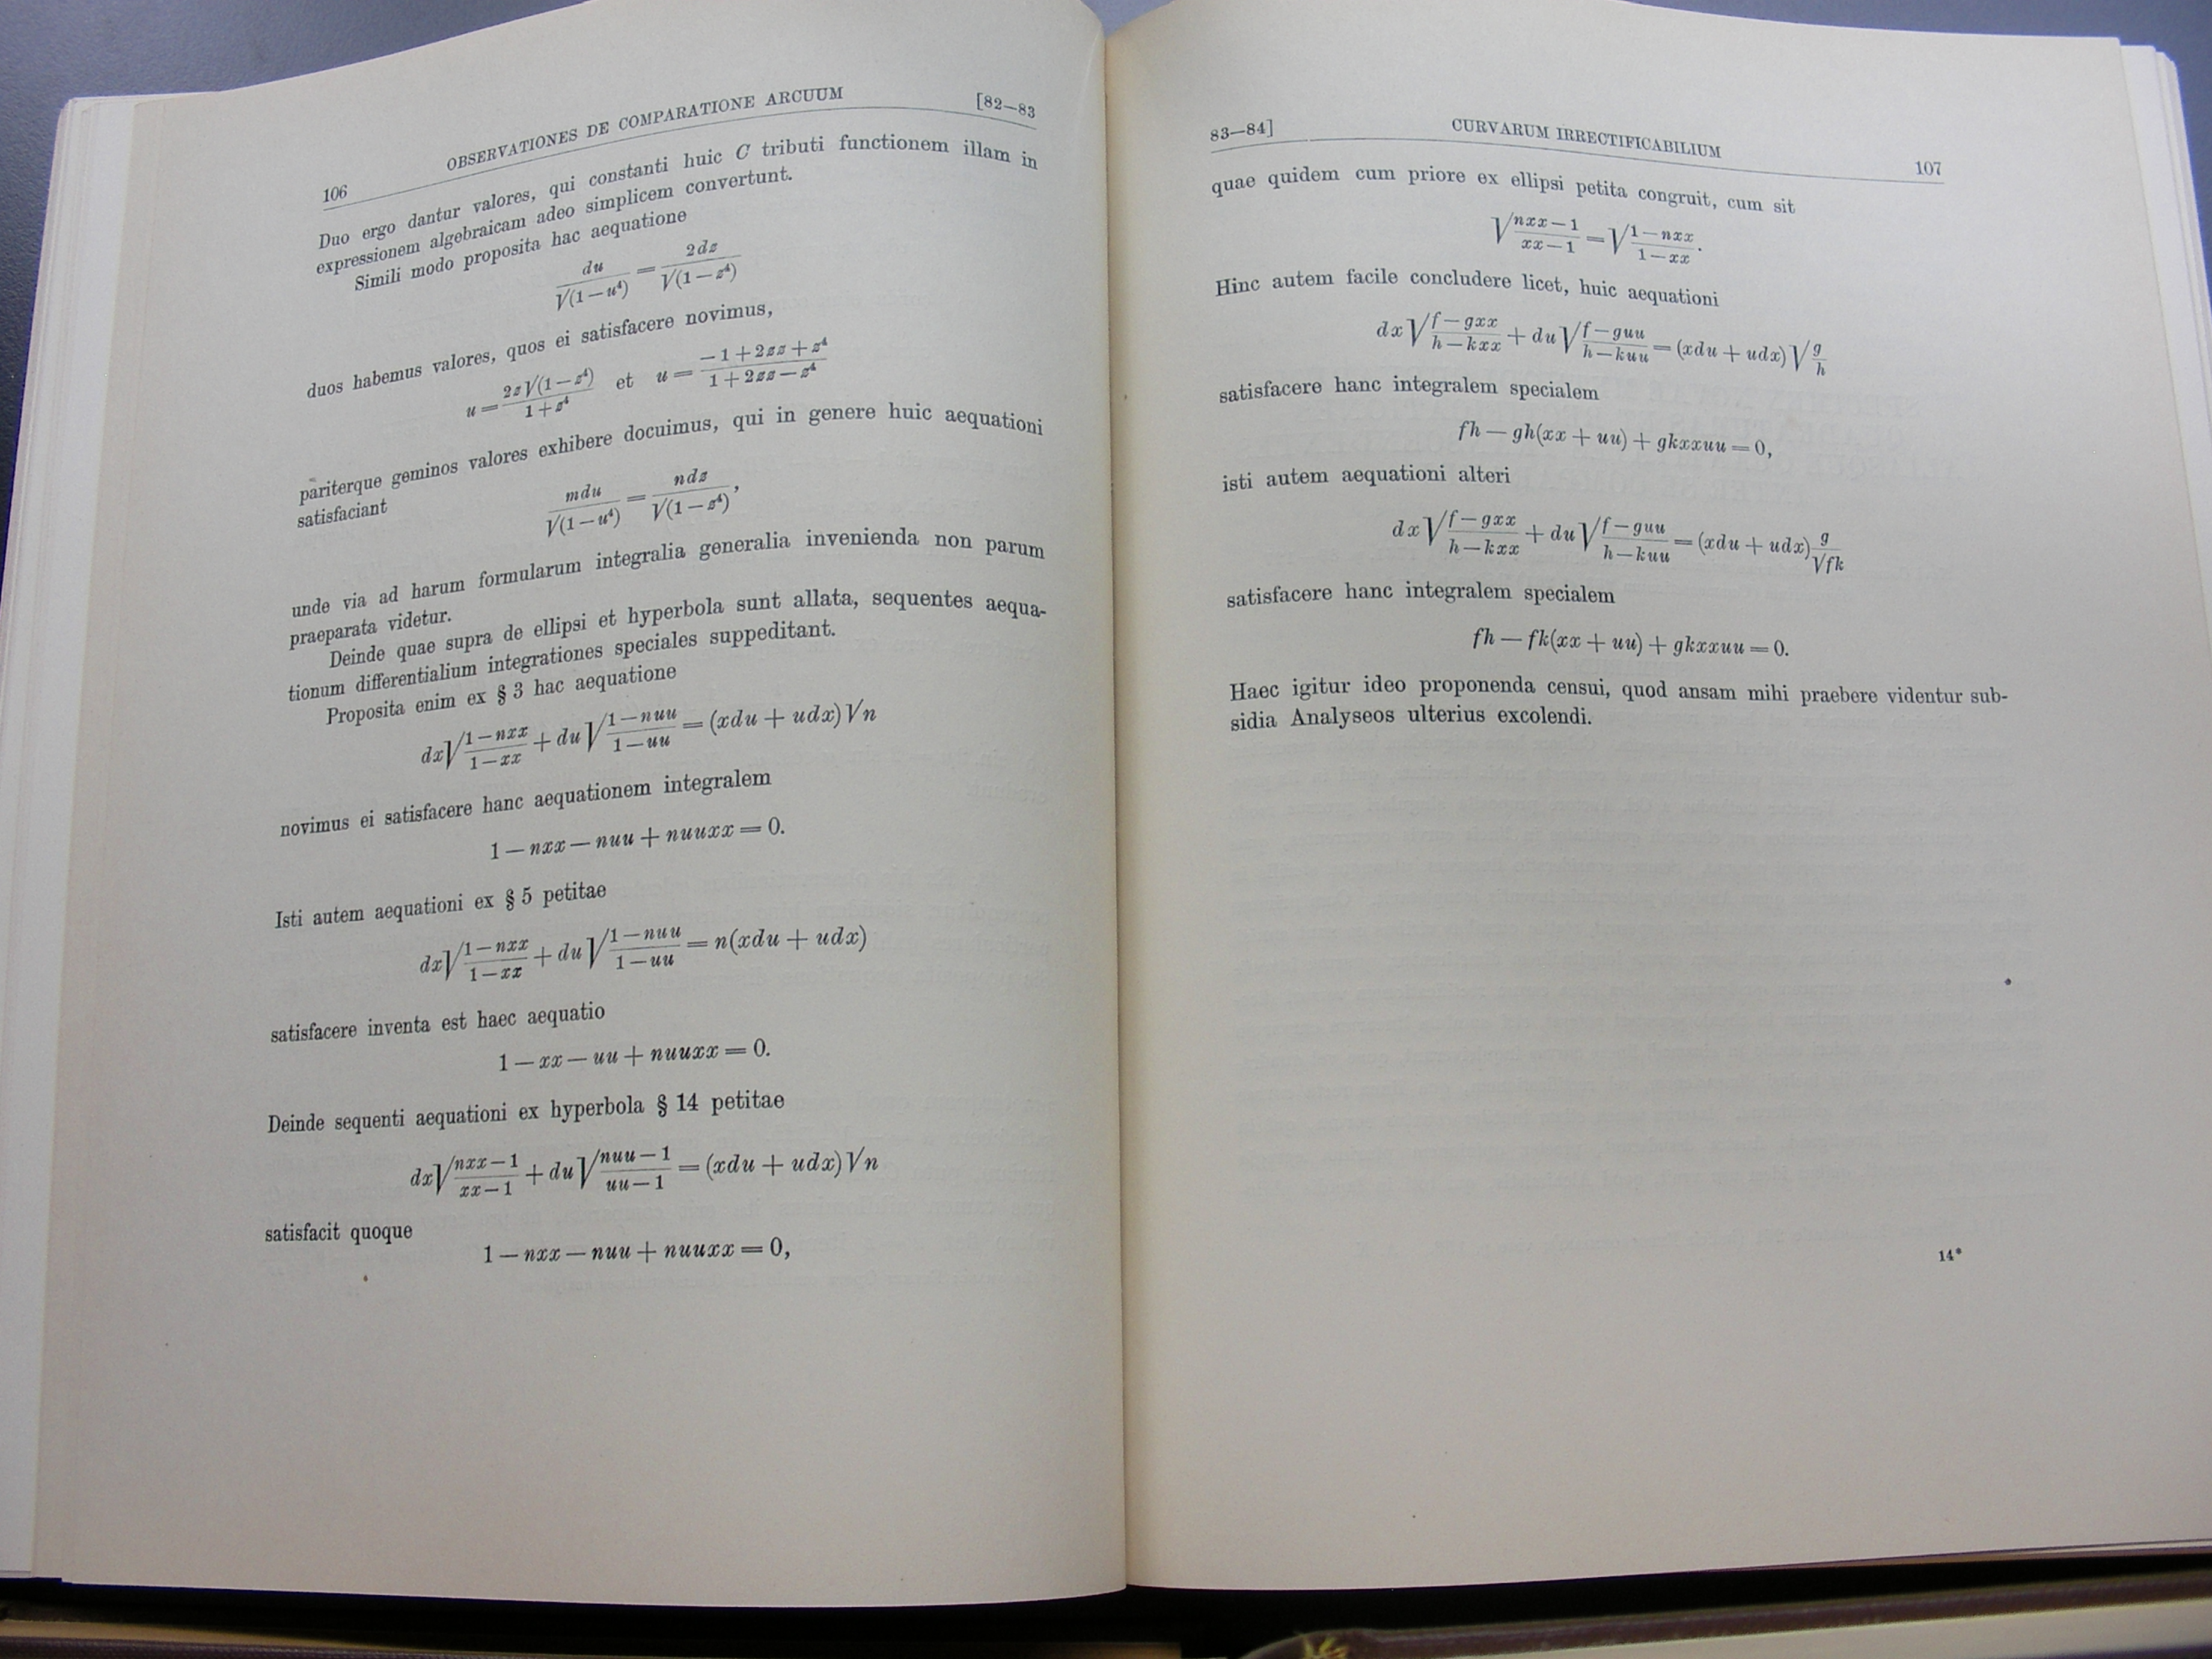 106 OBSERVATIONES DE COMPARATIONE ARCUUM [82—83
Duo ergo dantur valores, qui constanti huic C tributi functionem illam in
expressionem algebraicam adeo simplicem convertunt.
Simili modo proposita hac aequatione
du/√(1 — u⁴) = 2dz/√(1 — z⁴)
duos habemus valores, quos ei satisfacere novimus,
u = 2z√(1 — z⁴)/1 + z⁴ et u = —1 + 2zz + z⁴/1 + 2zz — z⁴
pariterque geminos valores exhibere docuimus, qui in genere huic aequationi
satisfaciant
mdu/√(1 — u⁴) = ndz/√(1 — z⁴),
unde via ad harum formularum integralia generalia invenienda non parum
praeparata videtur.
Deinde quae supra de ellipsi et hyperbola sunt allata, sequentes aequa-
tionum differentialium integrationes speciales suppeditant.
Proposita enim ex § 3 hac aequatione
dx√1 — nxx/1 — xx + du√1 — nuu/1 — uu = (xdu + udx)√n
novimus ei satisfacere hanc aequationem integralem
1 — nxx — nuu + nuuxx = 0.
Isti autem aequationi ex § 5 petitae
dx√1 — nxx/1 — xx + du√1 — nuu/1 — uu = n(xdu + udx)
satisfacere inventa est haec aequatio
1 — xx — uu + nuuxx = 0.
Deinde sequenti aequationi ex hyperbola § 14 petitae
dx√nxx — 1/xx — 1 + du√nuu — 1/uu — 1 = (xdu + udx)√n
satisfacit quoque
1 — nxx — nuu + nuuxx = 0,
83—84] CURVARUM IRRECTIFICABILIUM 107
quae quidem cum priore ex ellipsi petita congruit, cum sit
√nxx — 1/xx — 1 = √1 — nxx/1 — xx.
Hinc autem facile concludere licet, huic aequationi
dx√f — gxx/h — kxx + du√f — guu/h — kuu = (xdu + udx)√g/h
satisfacere hanc integralem specialem
fh — gh(xx + uu) + gkxxuu = 0,
isti autem aequationi alteri
dx√f — gxx/h — kxx + du√f — guu/h — kuu = (xdu + udx)g/√fk
satisfacere hanc integralem specialem
fh — fk(xx + uu) + gkxxuu = 0.
Haec igitur ideo proponenda censui, quod ansam mihi praebere videntur sub-
sidia Analyseos ulterius excolendi.
14*